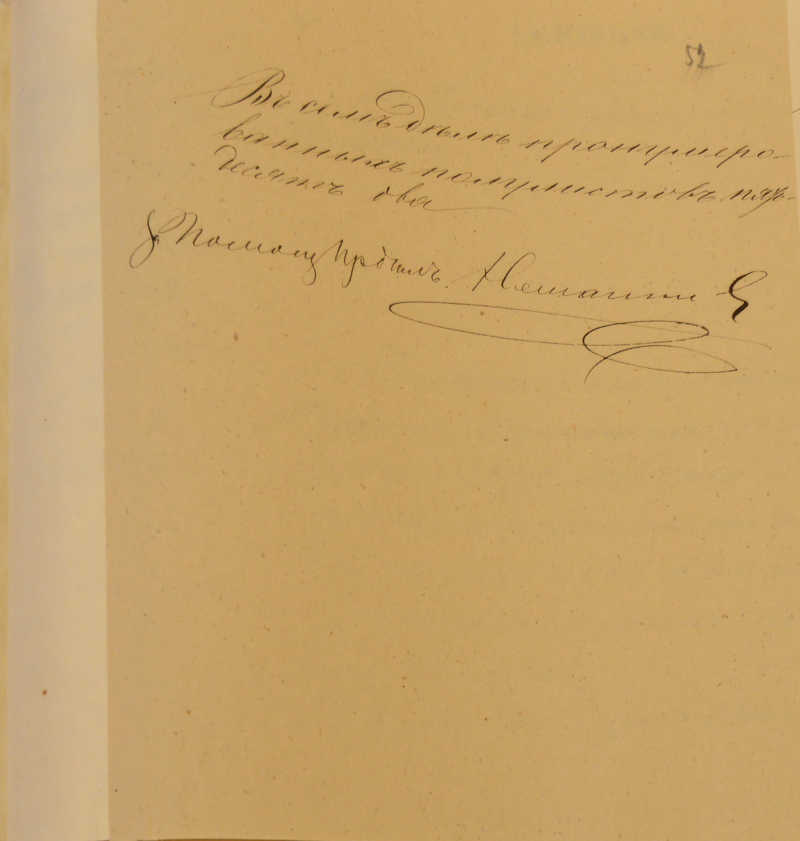 52
Въ семъ дѣлѣ пронумеро-
ванныхъ полулистовъ пять-
десятъ два
Помощ